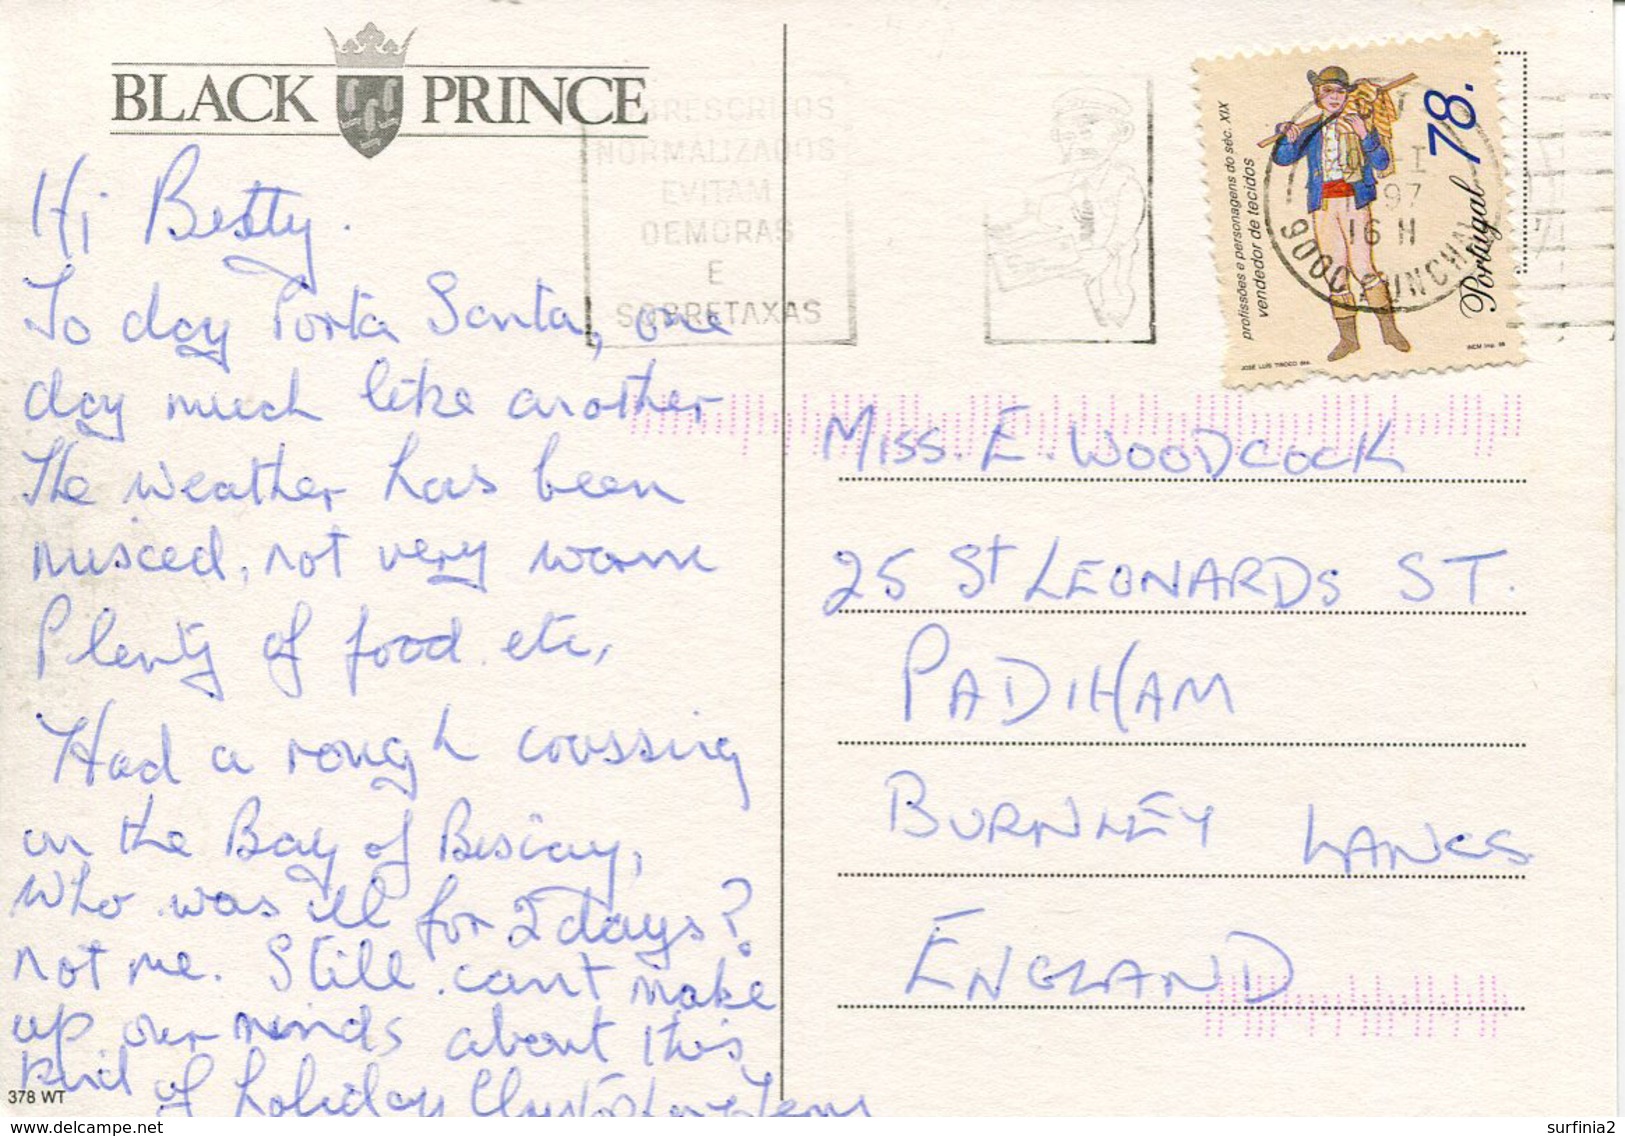 BLACK PRINCE
Hi Betty.
To day Porta Santa, one
day much like another
The weather has been
mixed, not very warm
Plenty of food etc,
Had a rough crossing
on the Bay of Biscay,
Who was ill for 2 days?
not me. Still can't make
up our minds about this
kind of holiday
378 WT
SOBRESCRITOS
NORMALIZADOS
EVITAM
DEMORAS
E
SOBRETAXAS
profissões e personagens do séc. XIX
vendedor de tecidos
78.
Portugal
JOSÉ LUIS TINOCO
97
16 H
9000 FUNCHAL
MISS. E. WOODCOCK
25 St LEONARDS ST.
PADIHAM
BURNLEY LANCS
ENGLAND
www.delcampe.net
surfinia2